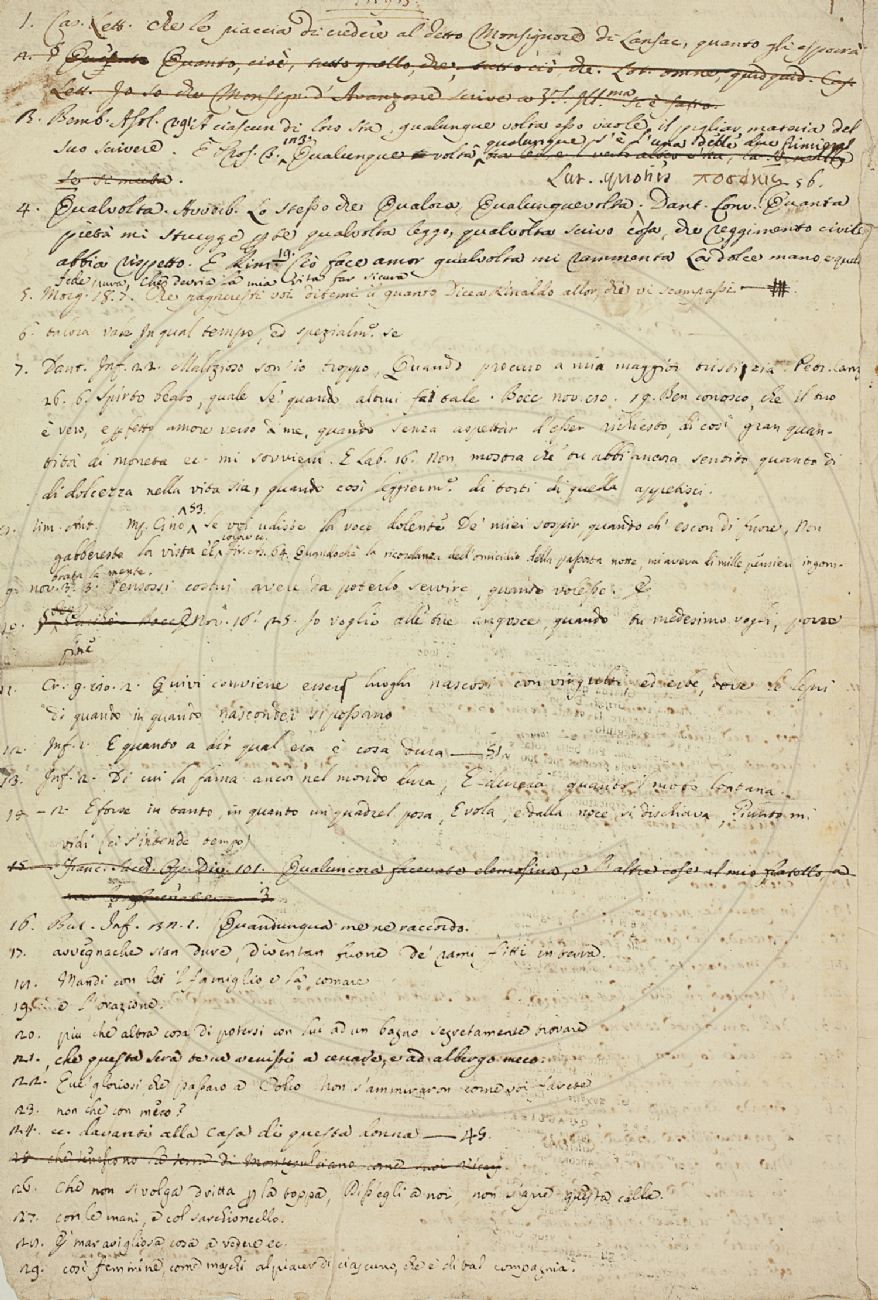 1. Cas. Lett. che le piaccia di credere al detto Monsignore di Lansac, quanto gli esporrà
Quanto, cioè, tutto quello, che, tutto ciò, che. Lat. omne, quidquid. Cas.
Lett. Io so che Monsign. d'Avanzone scrive a V. S. Illma si è fatto.
B. Bemb. Asol. A ciascun di loro sia, qualunque volta esso vuole il pigliar materia del
suo scrivere. E Pros. Qualunque volta
Lat. quoties ποσάκις 56.
4. Qualvolta. Avverb. Lo stesso che Qualora, Qualunquevolta. Dant. Conv. Quanta
pietà mi strugge qualvolta leggo, qualvolta scrivo cosa, che reggimento civile
abbia rispetto. E Rim. 19. Ciò face amor qualvolta mi rammenta La dolce mano e quella
fede pura, Che devria la mia vita far sicura
5. Morg. 18. Che pagheresti voi ditemi il quanto Dicea Rinaldo allor, che vi scampassi
6. talora vale In qual tempo, ed spezialm. se
7. Dant. Inf. 22. Malizioso son io troppo, Quando procuro a mia maggior tristizia. Petr. canz
26. 6. Spirto beato, quale Se' quando altrui fai tale. Bocc. nov. 19. Ben conosco, che il tuo
è vero, e perfetto amore verso di me, quando senza aspettar d'esser richiesto, di così gran quan-
tità di moneta ec. mi sovvieni. E Lab. 16. Non mostra che tu abbi ancora sentito quanto di
di dolcezza nella vita sia, quando così leggierm. di torti di quella appetisci.
Rim. Ant. M. Cino 53. Se voi udiste la voce dolente De' miei sospir quando ch'escon di fuore, Non
gabbereste la vista e'l colore ec. 64. Quandochè la ricordanza dell'omicidio della passata notte, mi aveva di mille pensieri ingom-
brata la mente.
nov. 3. 3. Pensossi costui avere da poterlo servire, quando volesse.
Nov. 16. 25. Io voglio alle tue angosce quando tu medesimo vogli, porre
fine
11. Cr. 9. 2. Quivi conviene essere luoghi nascosi con virgulti, ed erbe, dove le lepri
di quando in quando nasconder si possano
12. Inf. 1. E quanto a dir qual era è cosa dura — 51
13. Inf. 2. Di cui la fama ancor nel mondo dura, E durerà quanto 'l moto lontana.
14 – 2. E forse in tanto, in quanto un quadrel posa, E vola, e dalla noce si dischiava, Giunto mi
vidi (ci s'intende tempo)
15. Franc. Sacch. Op. Div. 101. Qualuncora facevate elemosina, e altre cose al mio fratello, a
16. But. Inf. 13. 1. Quandunqua me ne raccordo.
17. avvegnache sian dure, diventan fuore de' rami fitti in terra.
Mandi con lei 'l famiglio e la comare
19. e l'orazione.
20. piu che altra cosa di potersi con lui ad un bagno segretamente trovare
21. che questa sera te ne venissi a cenare, e ad albergo meco.
22. Que' gloriosi che passaro a Colco Non s'ammiraron come voi farete
23. non che con meco?
24. ec. davanti alla casa di questa donna — 49.
25. che tenessono la terra di Montepulciano come suoi Vicarj.
26. Che non si volga dritta per la toppa, Diss'egli a noi, non s'apre questa calla.
27. con le mani, e col sarchioncello.
È maravigliosa cosa a vedere ec.
29. così femmine, come maschi al piacer di ciascuno, che è di tal compagnia.